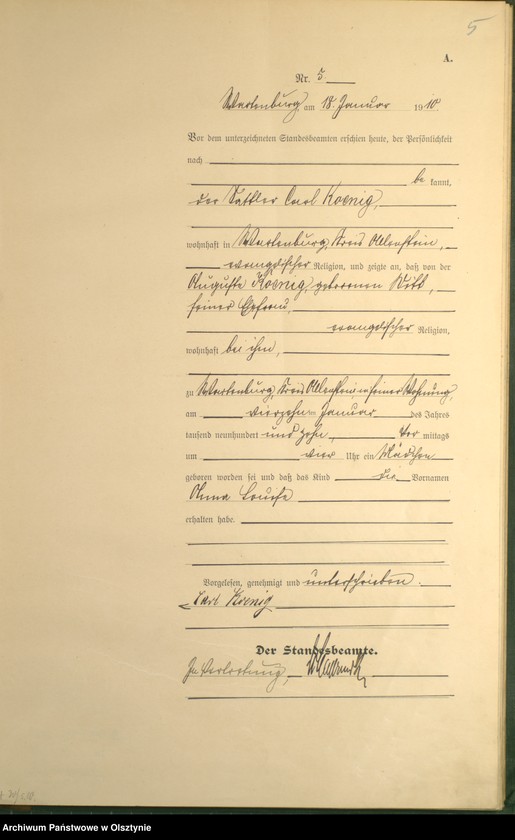 5
A.
Nr. 5.
Wartenburg am 18. Januar 1910.
Vor dem unterzeichneten Standesbeamten erschien heute, der Persönlichkeit
nach
be kannt,
der Sattler Carl Koenig,
wohnhaft in Wartenburg, Kreis Allenstein,
evangelischer Religion, und zeigte an, daß von der
Auguste Koenig, geborenen
seiner Ehefrau,
evangelischer Religion,
wohnhaft bei ihm,
zu Wartenburg, Kreis Allenstein, in seiner Wohnung,
am vierzehnten Januar des Jahres
tausend neunhundert und zehn, Vor mittags
um vier Uhr ein Mädchen
geboren worden sei und daß das Kind die Vornamen
Anna Louise
erhalten habe.
Vorgelesen, genehmigt und unterschrieben.
Carl Koenig
Der Standesbeamte.
In Vertretung,
Archiwum Państwowe w Olsztynie